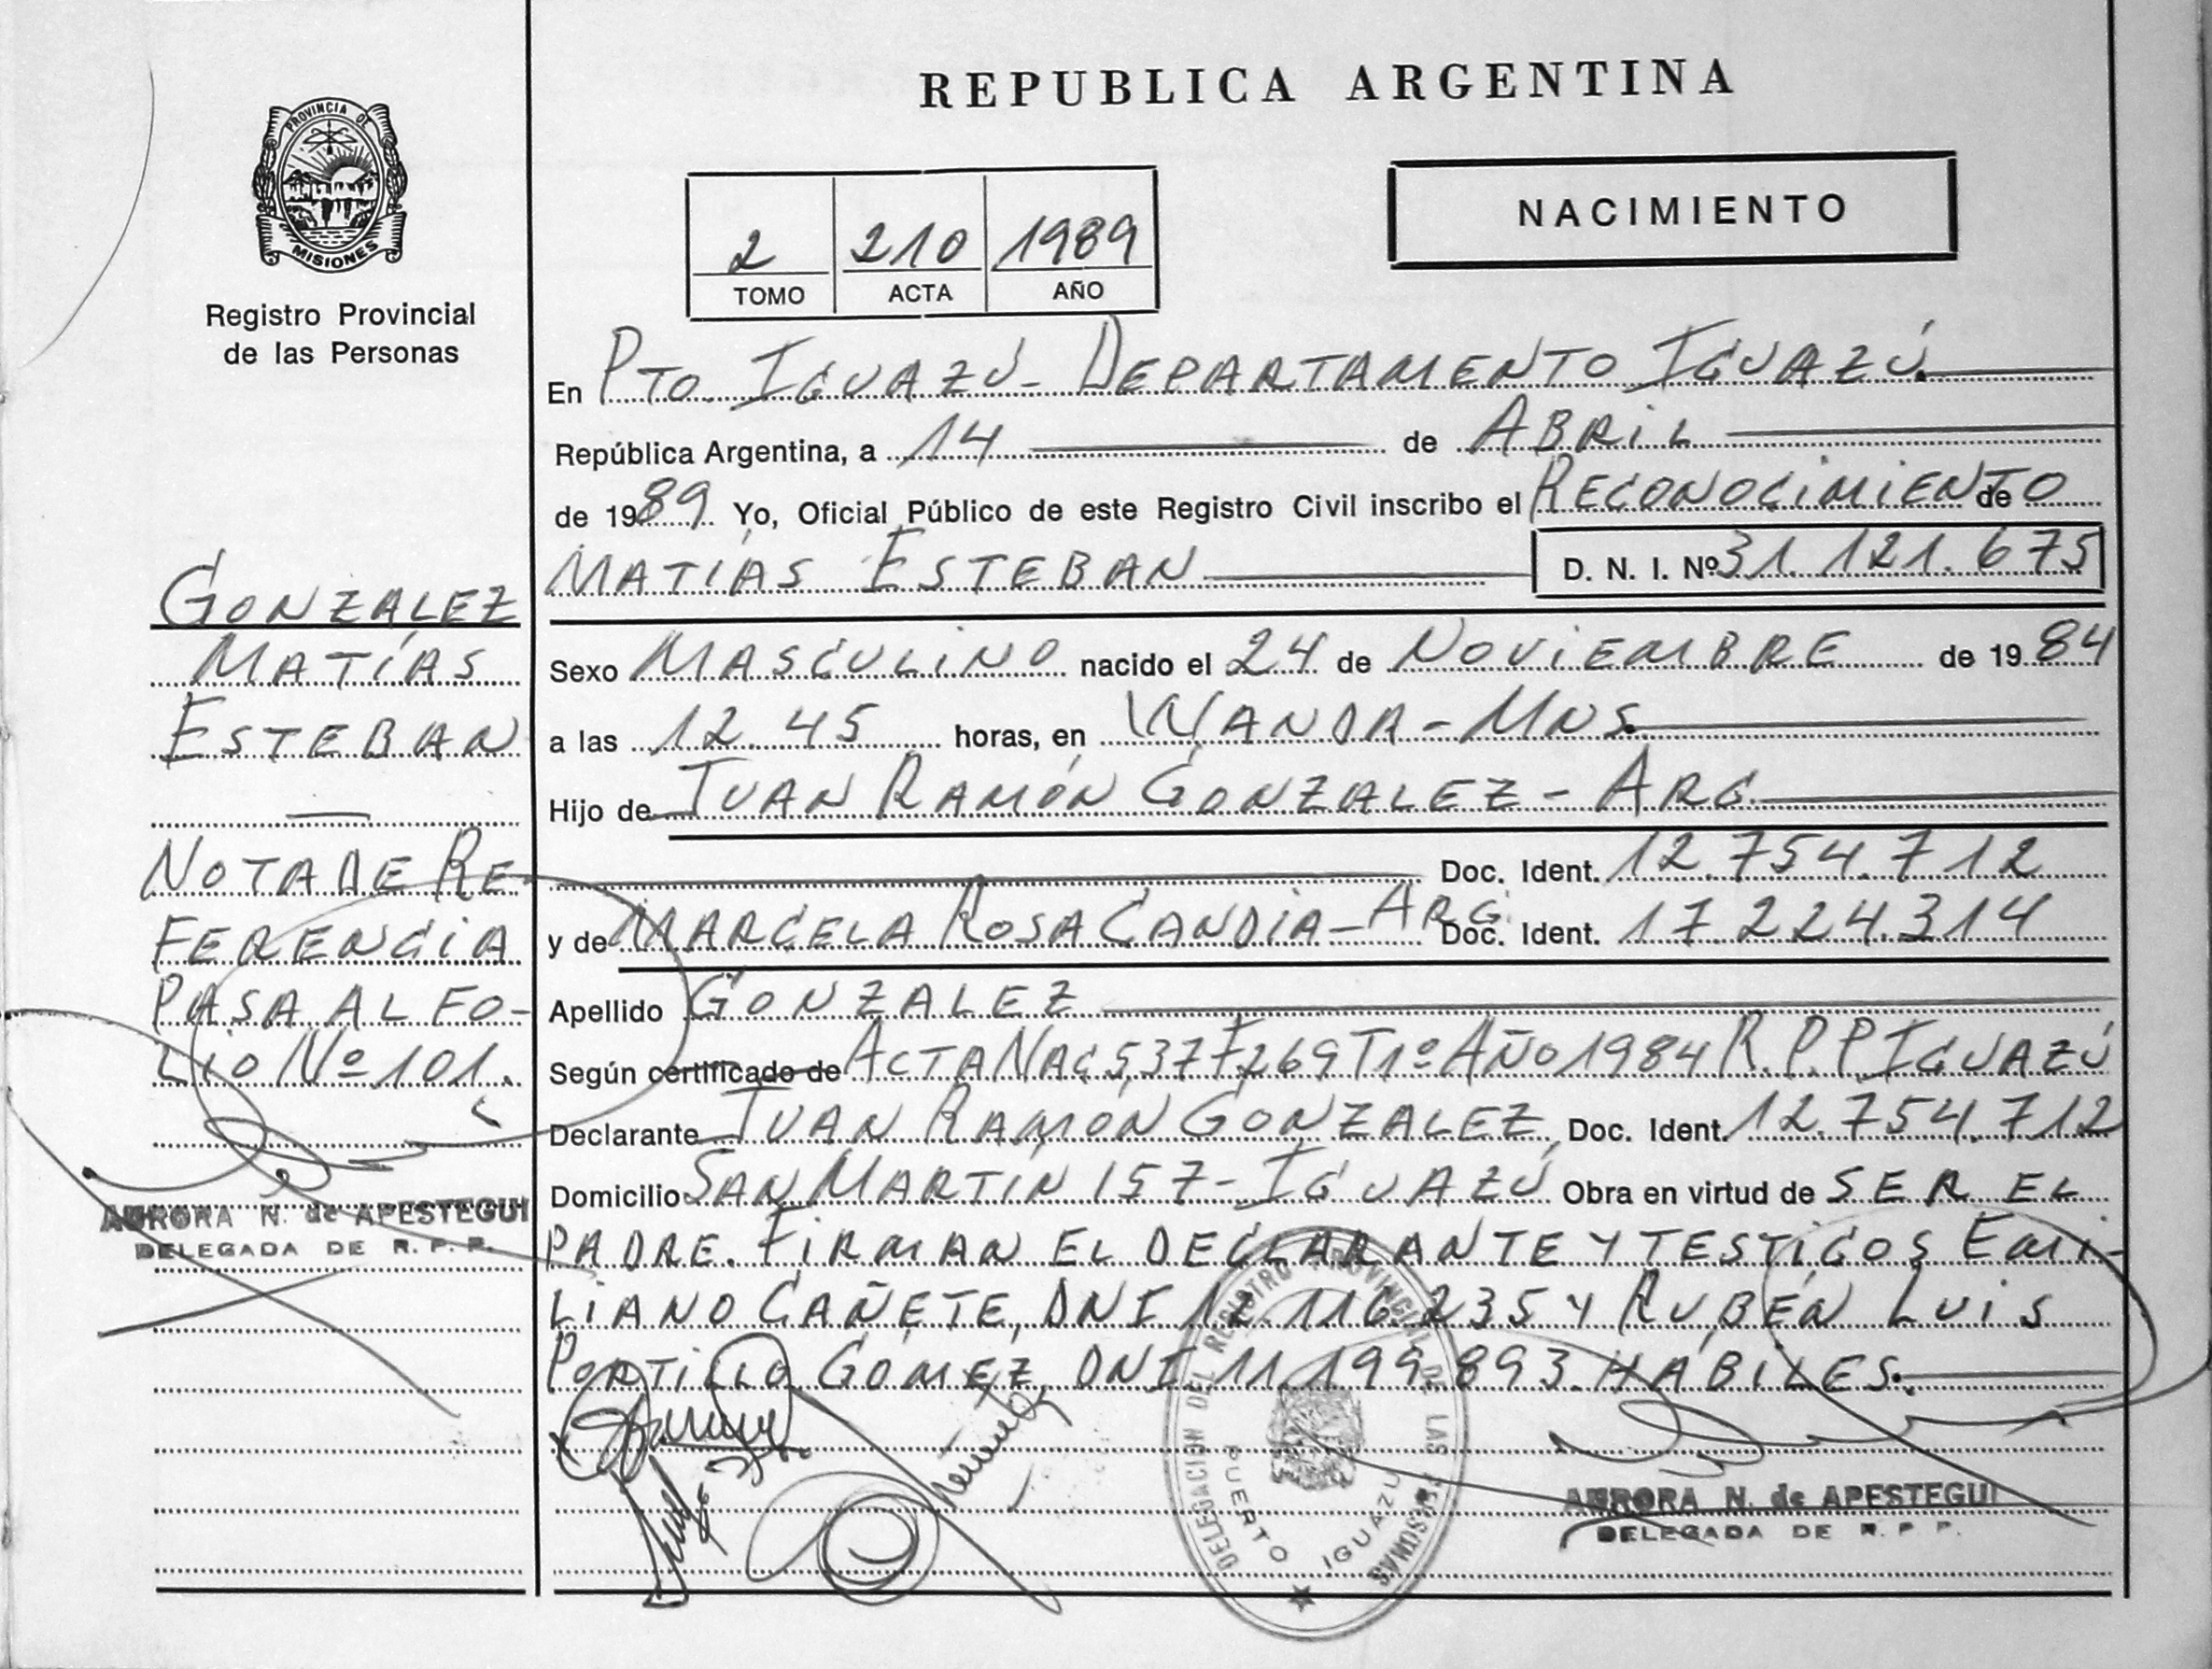 REPUBLICA ARGENTINA
PROVINCIA DE
MISIONES
Registro Provincial
de las Personas
2 210 1989
TOMO ACTA AÑO
NACIMIENTO
En PTO. IGUAZÚ - DEPARTAMENTO IGUAZÚ.
República Argentina, a 14 de ABRIL
de 1989 Yo, Oficial Público de este Registro Civil inscribo el RECONOCIMIENTO de
MATÍAS ESTEBAN D. N. I. Nº 31.121.675
Sexo MASCULINO nacido el 24 de NOVIEMBRE de 1984
a las 12.45 horas, en WANDA - MNS.
Hijo de JUAN RAMÓN GONZALEZ - ARG.
Doc. Ident. 12.754.712
y de MARCELA ROSA CANDIA - ARG. Doc. Ident. 17.224.314
Apellido GONZALEZ
Según certificado de ACTA NAC 537 F269 T1º AÑO 1984 R.P.P IGUAZÚ
Declarante JUAN RAMÓN GONZALEZ, Doc. Ident. 12.754.712
Domicilio SAN MARTÍN 157 - IGUAZÚ Obra en virtud de SER EL
PADRE. FIRMAN EL DECLARANTE Y TESTIGOS EMI-
LIANO CAÑETE, DNI 12.116.235 Y RUBÉN LUIS
PORTILLO GÓMEZ, DNI 11.199.893. HÁBILES.
GONZALEZ
MATÍAS
ESTEBAN
NOTA DE RE-
FERENCIA
PASA AL FO-
LIO Nº 101.
AURORA N. de APESTEGUI
DELEGADA DE R. P. P.
DELEGACION DEL REGISTRO PROVINCIAL DE LAS PERSONAS
PUERTO IGUAZU
AURORA N. de APESTEGUI
DELEGADA DE R. P. P.